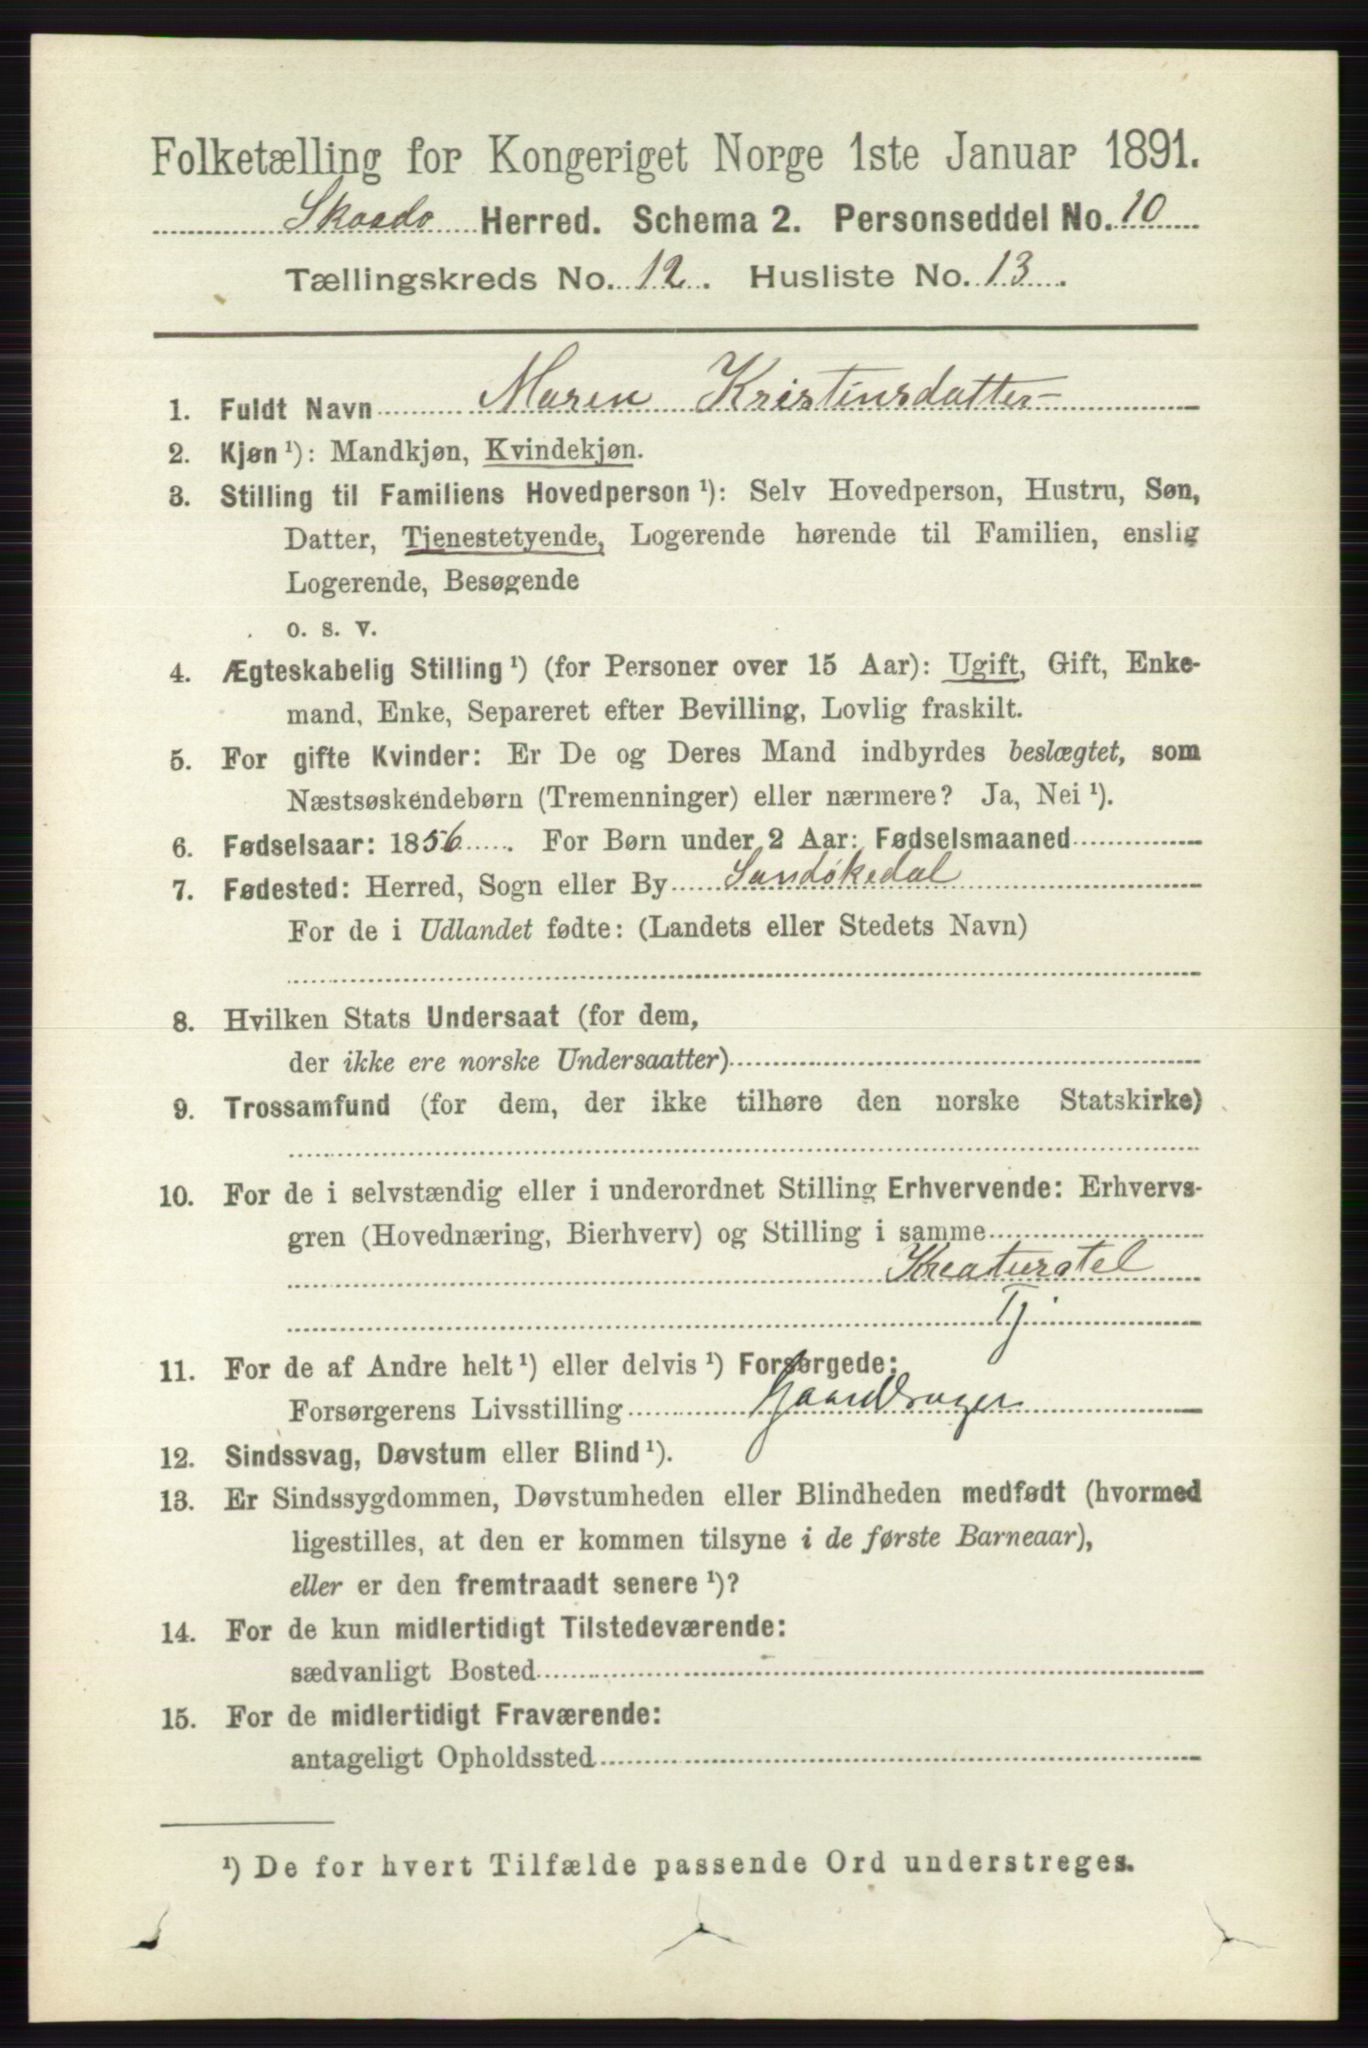 Folketælling for Kongeriget Norge 1ste Januar 1891.
Skaado Herred. Schema 2. Personseddel No. 10
Tællingskreds No. 12. Husliste No. 13.
1. Fuldt Navn Maren Kristinsdatter
2. Kjøn ¹): Mandkjøn, Kvindekjøn.
3. Stilling til Familiens Hovedperson ¹): Selv Hovedperson, Hustru, Søn,
Datter, Tjenestetyende, Logerende hørende til Familien, enslig
Logerende, Besøgende
o. s. v.
4. Ægteskabelig Stilling ¹) (for Personer over 15 Aar): Ugift, Gift, Enke-
mand, Enke, Separeret efter Bevilling, Lovlig fraskilt.
5. For gifte Kvinder: Er De og Deres Mand indbyrdes beslægtet, som
Næstsøskendebørn (Tremenninger) eller nærmere? Ja, Nei ¹).
6. Fødselsaar: 1856. For Børn under 2 Aar: Fødselsmaaned
7. Fødested: Herred, Sogn eller By Sandøkedal
For de i Udlandet fødte: (Landets eller Stedets Navn)
8. Hvilken Stats Undersaat (for dem,
der ikke ere norske Undersaatter)
9. Trossamfund (for dem, der ikke tilhøre den norske Statskirke)
10. For de i selvstændig eller i underordnet Stilling Erhvervende: Erhvervs-
gren (Hovednæring, Bierhverv) og Stilling i samme
Kreaturstel
Tj
11. For de af Andre helt ¹) eller delvis ¹) Forsørgede:
Forsørgerens Livsstilling Gaardbruger
12. Sindssvag, Døvstum eller Blind ¹).
13. Er Sindssygdommen, Døvstumheden eller Blindheden medfødt (hvormed
ligestilles, at den er kommen tilsyne i de første Barneaar),
eller er den fremtraadt senere ¹)?
14. For de kun midlertidigt Tilstedeværende:
sædvanligt Bosted
15. For de midlertidigt Fraværende:
antageligt Opholdssted
¹) De for hvert Tilfælde passende Ord understreges.